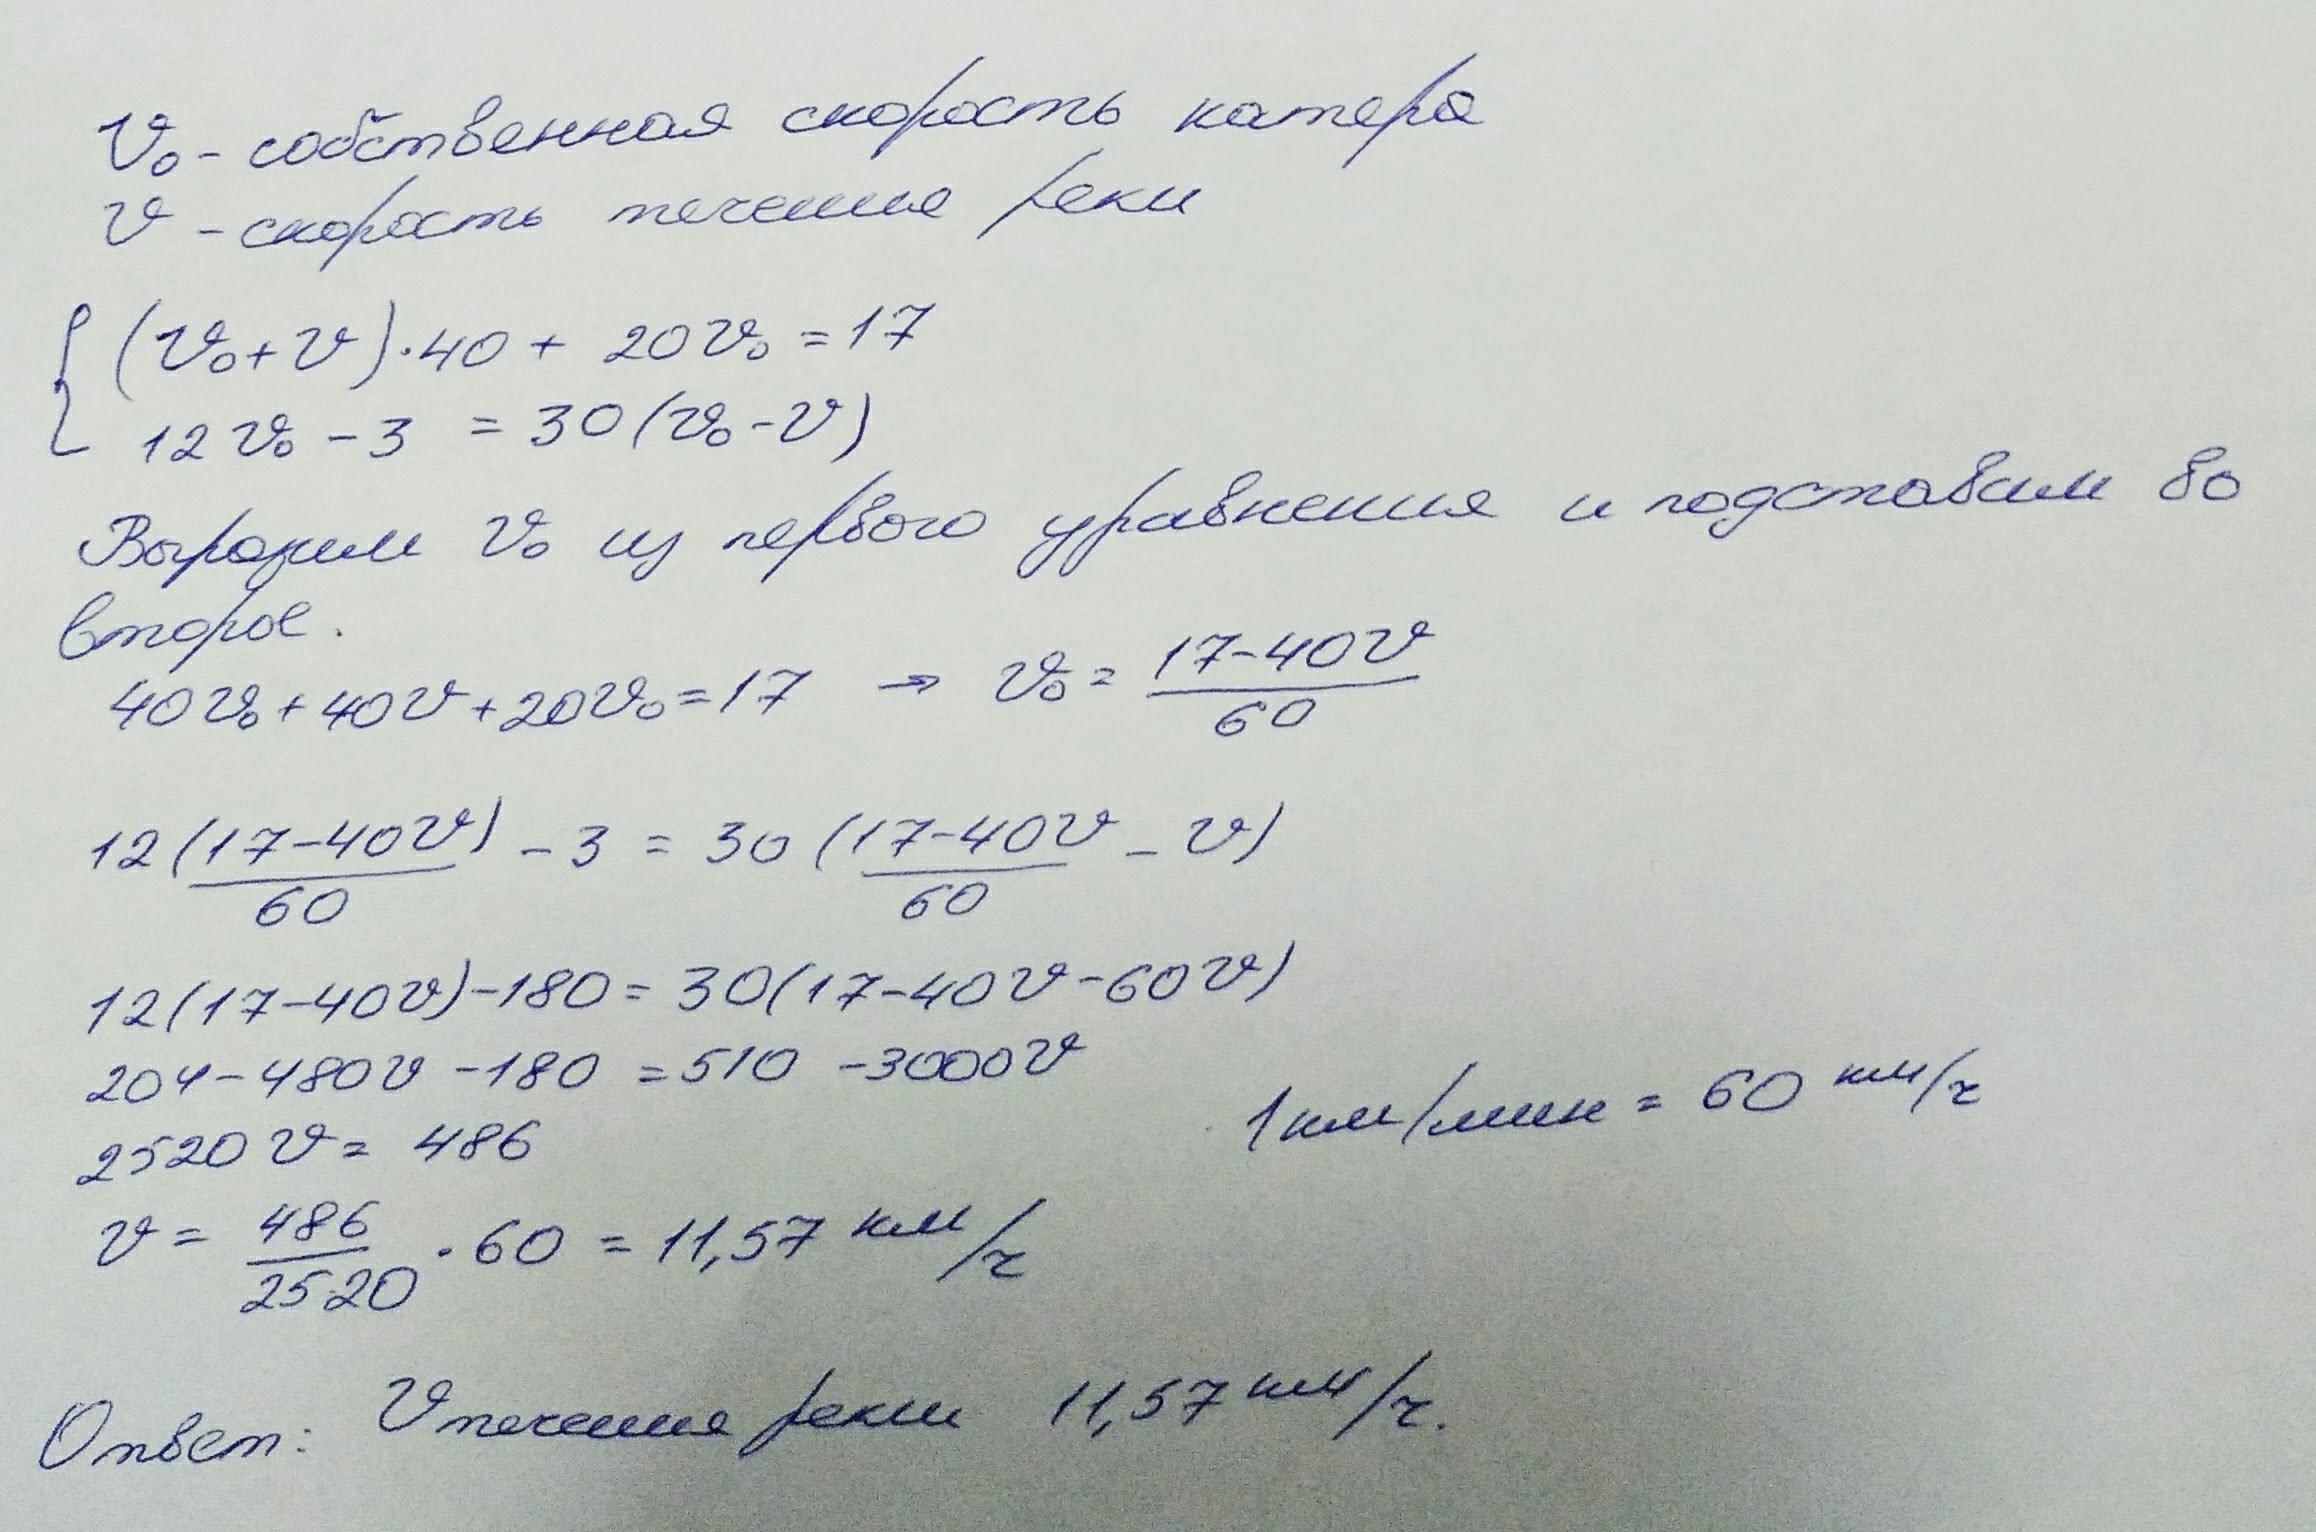 V₀ - собственная скорость катера
V - скорость течения реки
{ (V₀ + V) · 40 + 20V₀ = 17
12V₀ - 3 = 30(V₀ - V)
Выразим V₀ из первого уравнения и подставим во
второе.
40V₀ + 40V + 20V₀ = 17 → V₀ = (17 - 40V)/60
12(17 - 40V)/60 - 3 = 30((17 - 40V)/60 - V)
12(17 - 40V) - 180 = 30(17 - 40V - 60V)
204 - 480V - 180 = 510 - 3000V
1 км/мин = 60 км/ч
2520V = 486
V = 486/2520 · 60 = 11,57 км/ч
Ответ: V течения реки 11,57 км/ч.